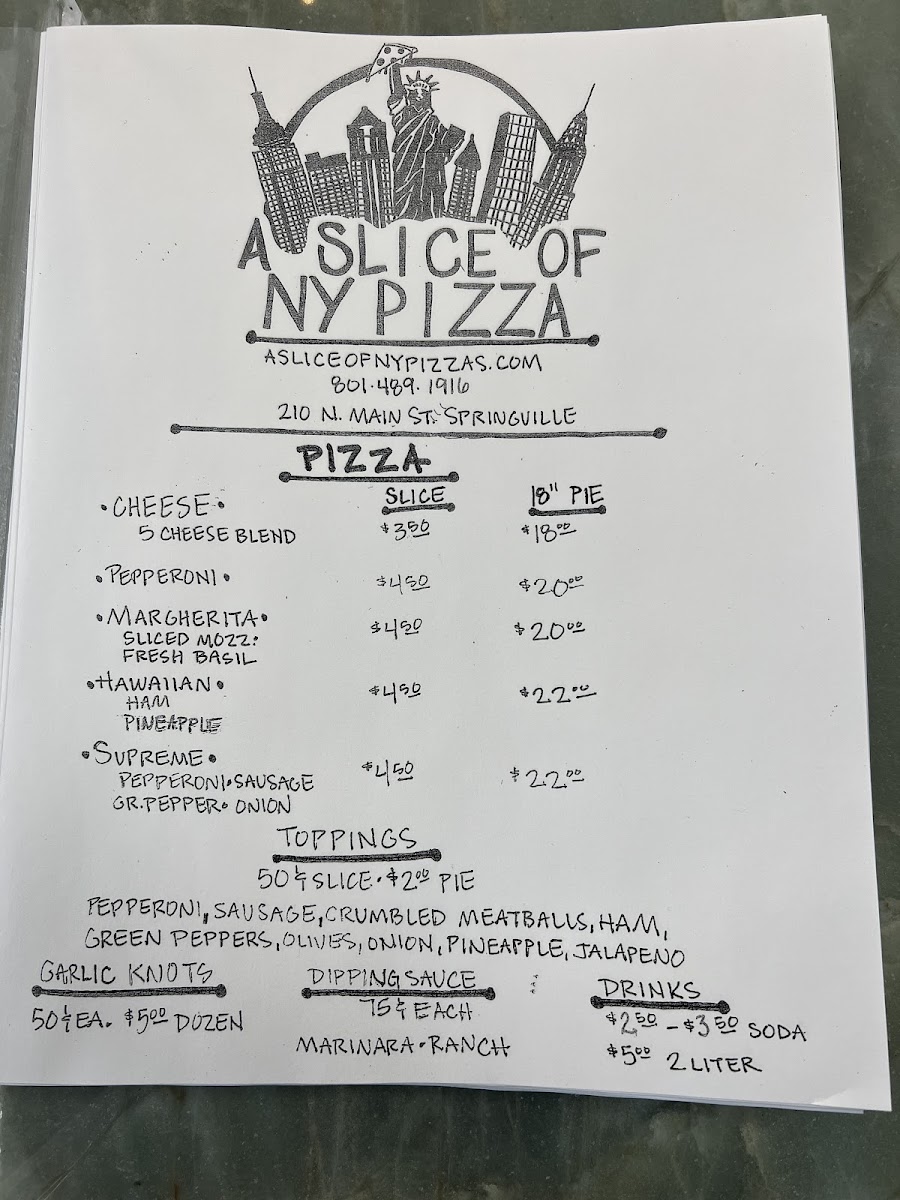 A SLICE OF
NY PIZZA
ASLICEOFNYPIZZAS.COM
801.489.1916
210 N. MAIN ST. SPRINGVILLE
PIZZA
SLICE 18" PIE
•CHEESE•
5 CHEESE BLEND $3.50 $18.00
•PEPPERONI• $4.50 $20.00
•MARGHERITA• $4.50 $20.00
SLICED MOZZ•
FRESH BASIL
•HAWAIIAN• $4.50 $22.00
HAM
PINEAPPLE
•SUPREME• $4.50 $22.00
PEPPERONI•SAUSAGE
GR.PEPPER• ONION
TOPPINGS
50¢ SLICE • $2.00 PIE
PEPPERONI, SAUSAGE, CRUMBLED MEATBALLS, HAM,
GREEN PEPPERS, OLIVES, ONION, PINEAPPLE, JALAPENO
GARLIC KNOTS
50¢ EA. $5.00 DOZEN
DIPPING SAUCE
75¢ EACH
MARINARA • RANCH
DRINKS
$2.50 - $3.50 SODA
$5.00 2 LITER